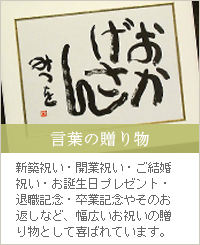 おかげさん
みつを
言葉の贈り物
新築祝い・開業祝い・ご結婚
祝い・お誕生日プレゼント・
退職記念・卒業記念やそのお
返しなど、幅広いお祝いの贈
り物として喜ばれています。